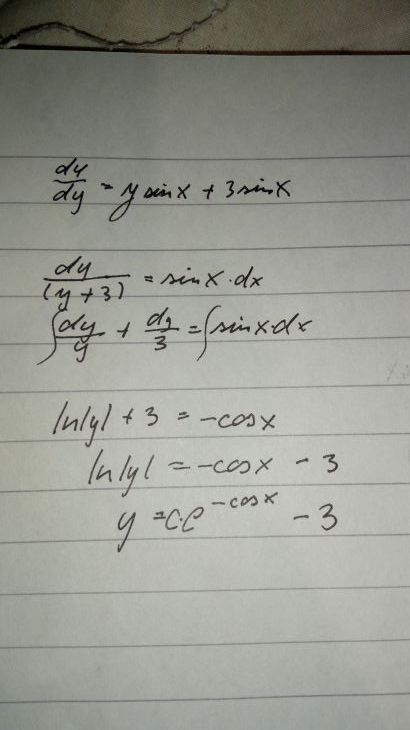 dy/dy = y sinx + 3 sinx
dy/(y+3) = sinx·dx
∫dy/y + dy/3 = ∫sinx·dx
ln|y| + 3 = -cosx
ln|y| = -cosx - 3
y = C·e^-cosx - 3